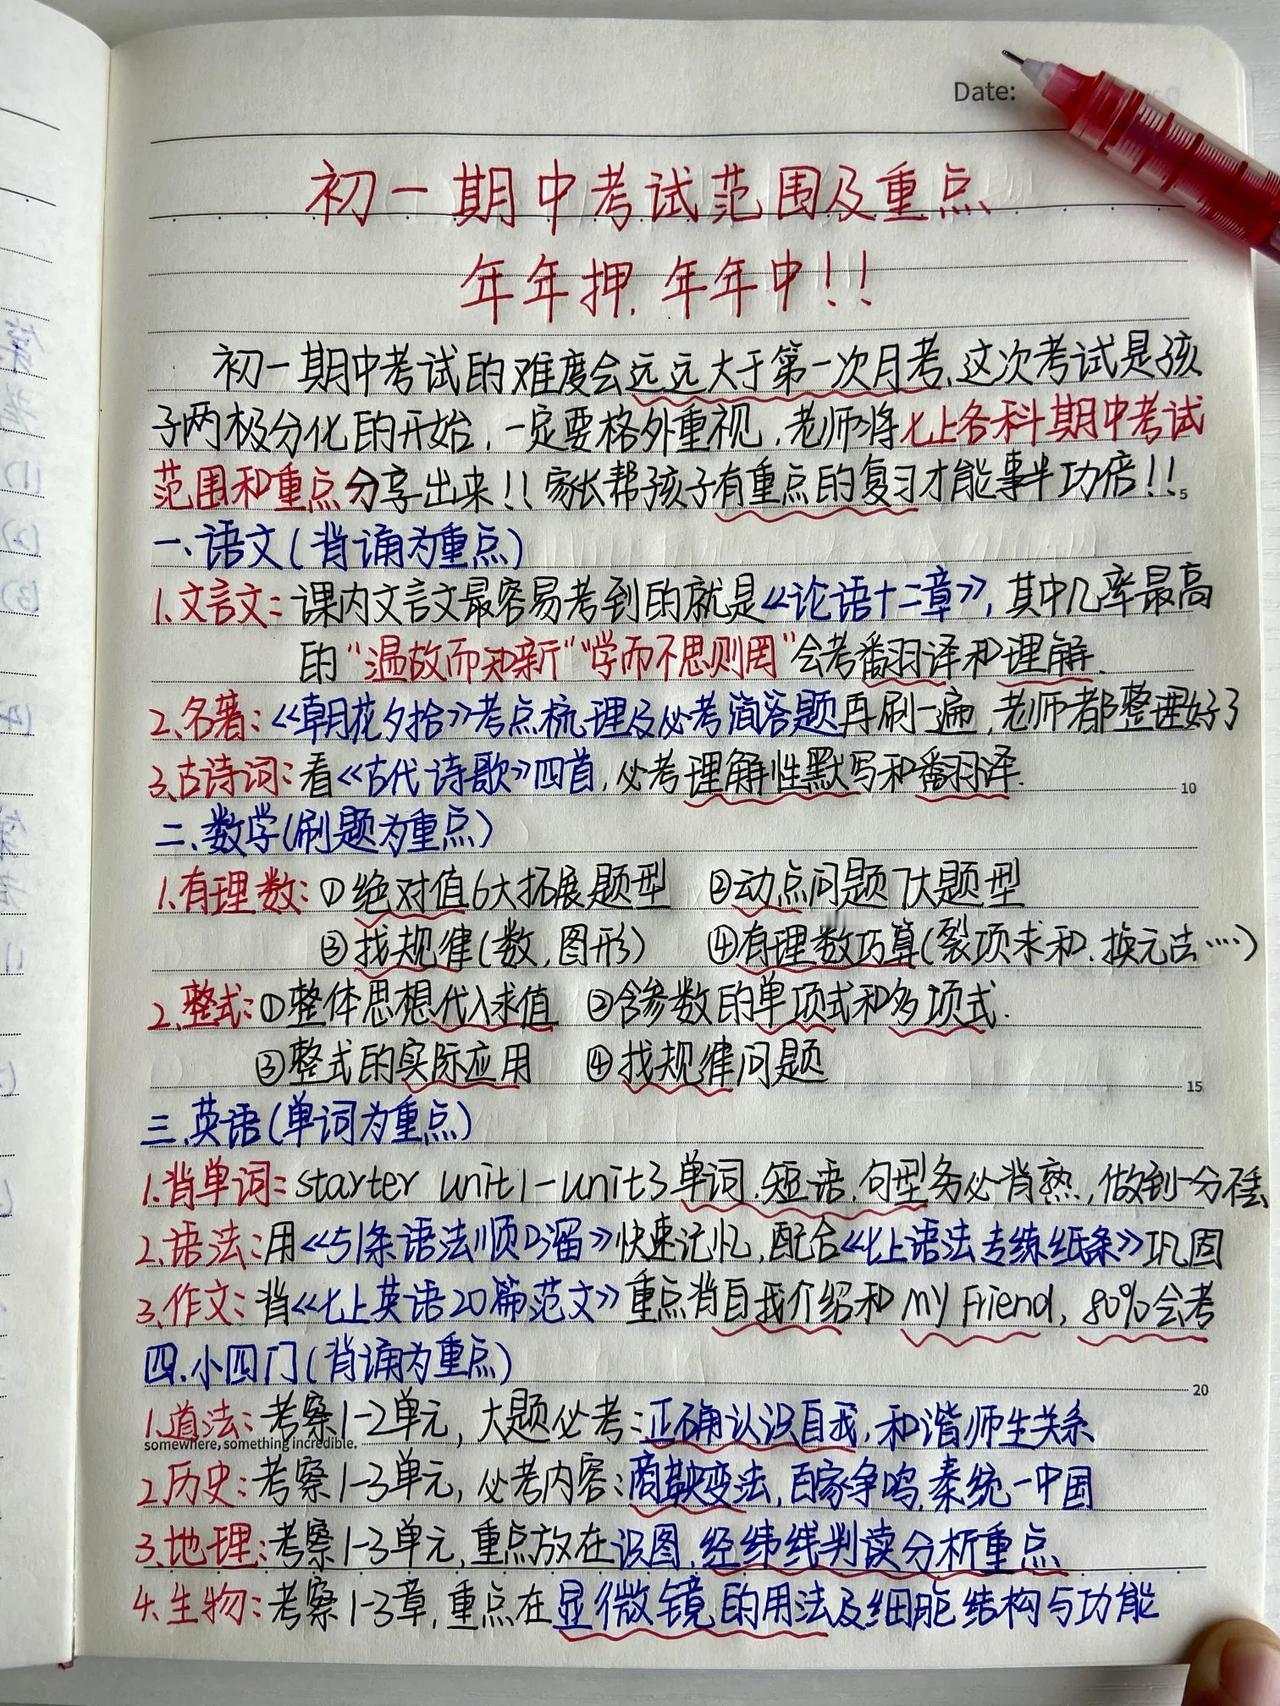 Date:
初一期中考试范围及重点
年年押,年年中!!
初一期中考试的难度会远远大于第一次月考,这次考试是孩
子两极分化的开始,一定要格外重视,老师将七上各科期中考试
范围和重点分享出来!!家长帮孩子有重点的复习才能事半功倍!!
5
一.语文(背诵为重点)
1.文言文:课内文言文最容易考到的就是《论语十二章》,其中几率最高
的“温故而知新”“学而不思则罔”会考翻译和理解.
2.名著:《朝花夕拾》考点梳理及必考简答题再刷一遍,老师都整理好了
3.古诗词:看《古代诗歌》四首,必考理解性默写和翻译.
10
二.数学(刷题为重点)
1.有理数:①绝对值6大拓展题型 ②动点问题7大题型
③找规律(数,图形) ④有理数巧算(裂项求和.换元法····)
2.整式:①整体思想代入求值 ②含参数的单项式和多项式.
③整式的实际应用 ④找规律问题
15
三.英语(单词为重点)
1.背单词:starter unit1-unit3单词.短语.句型务必背熟,做到一分不丢
2.语法:用《51条语法顺口溜》快速记忆,配合《七上语法专练纸条》巩固
3.作文:背《七上英语20篇范文》重点背自我介绍和my friend,80%会考
四.小四门(背诵为重点)
20
1.道法:考察1-2单元,大题必考:正确认识自我,和谐师生关系
somewhere, something incredible.
2.历史:考察1-3单元,必考内容:商鞅变法,百家争鸣,秦统一中国
3.地理:考察1-3单元,重点放在识图,经纬线判读分析重点
4.生物:考察1-3章,重点在显微镜的用法及细胞结构与功能